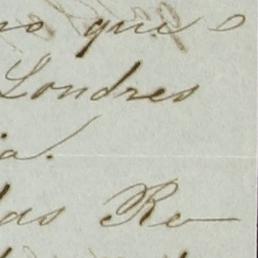 no que o
Londres
ia.
das Re-